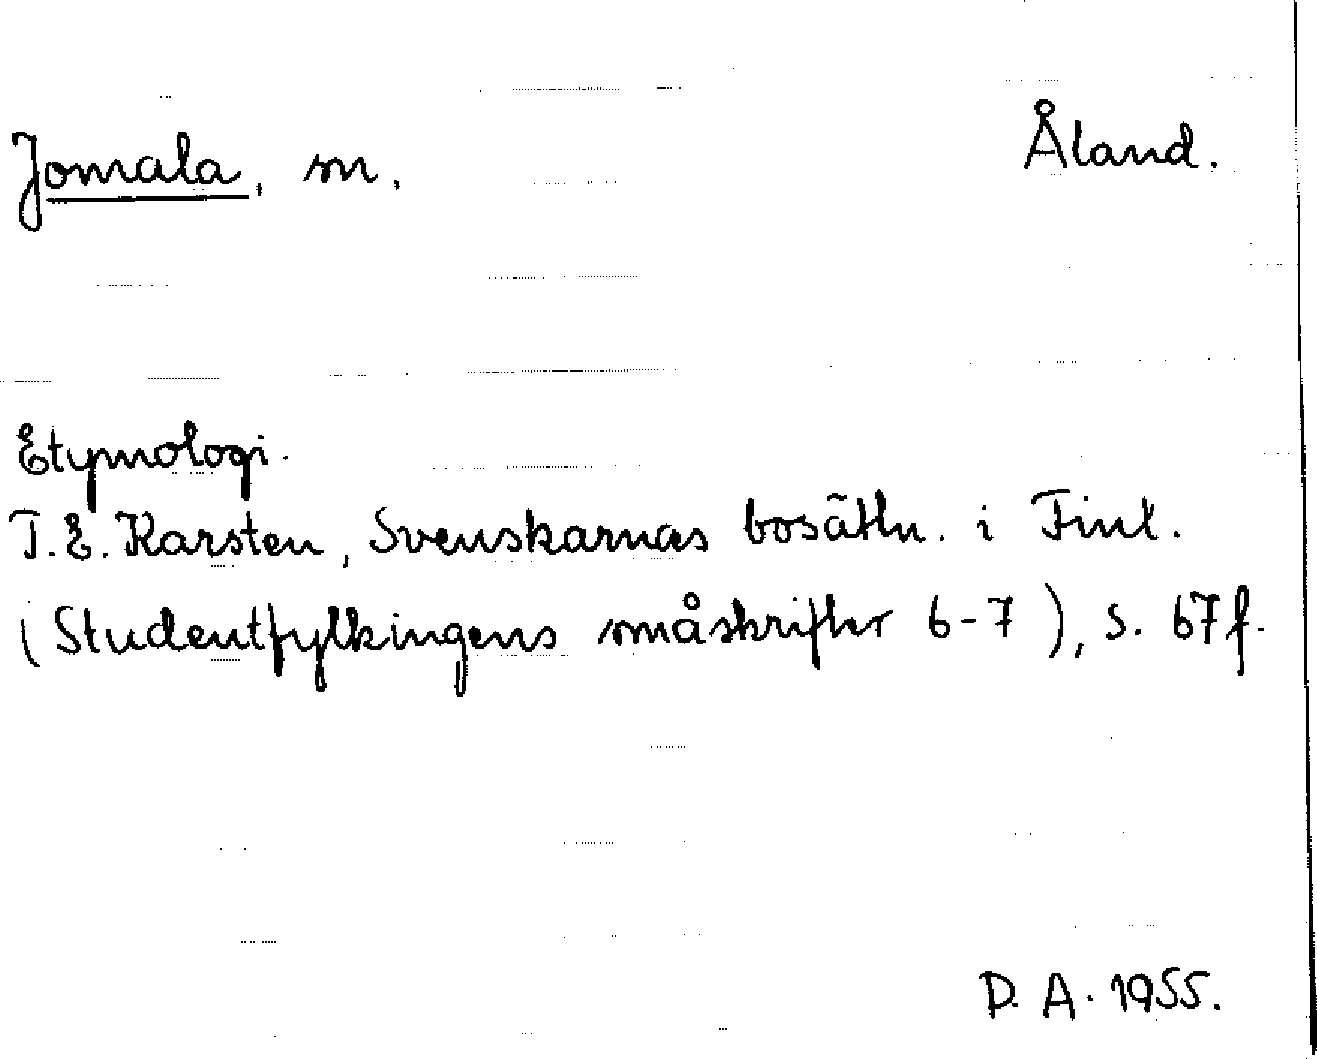 Jomala, m. Åland.
Etymologi.
T.E. Karsten, Svenskarnas bosättn. i Finl.
(Studentfylkingens småskrifter 6-7), s. 67f.
D. A. 1955.